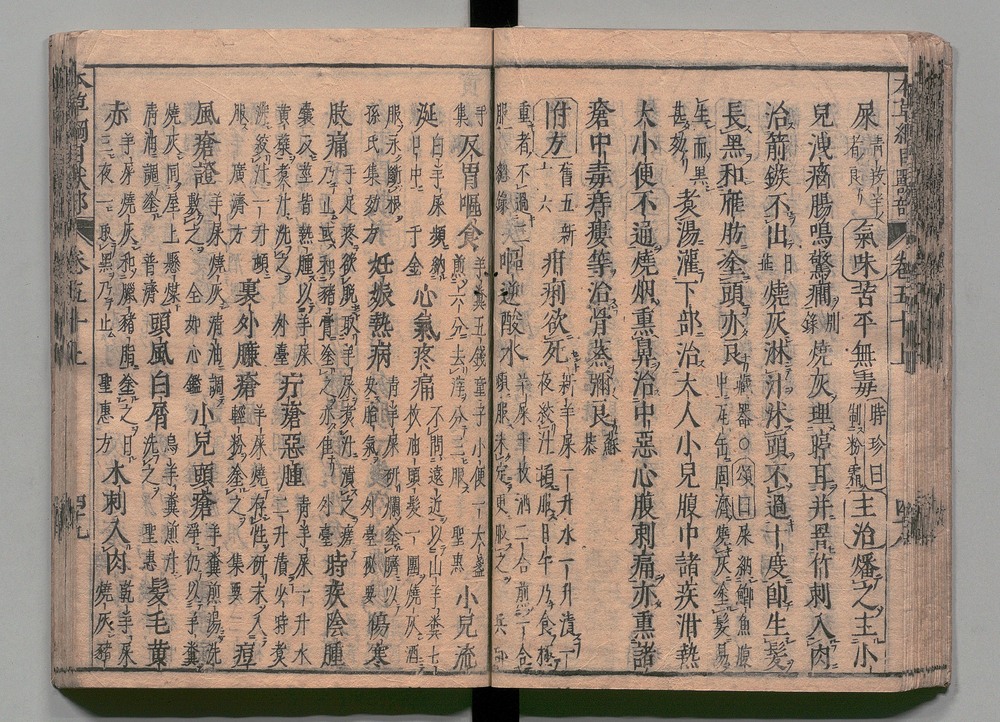 屎 青羖羊者良 氣味苦平無毒 時珍曰制粉霜 主治燔之主小
兒洩痢腸鳴驚癇 別錄 燒灰理聤耳并罯竹刺入肉
治箭鏃不出 日華 燒灰淋汁沐頭不過十度卽生髮
長黑和雁肪塗頭亦良 頌曰屎納鯽魚腹中瓦缶固濟燒灰塗髮易
生而黑甚効 煮湯灌下部治大人小兒腹中諸疾疳熱
大小便不通燒烟熏鼻治中惡心腹刺痛亦熏諸
瘡中毒痔瘻等治骨蒸彌良 蘇恭
附方 舊五新十六 疳痢欲死 新羊屎一升水一升漬一夜絞汁頓服日午乃食極
重者不過三 嘔逆酸水 羊屎十枚酒二合煎一合頓服未定更服之 兵部手
集 反胃嘔食 羊糞五錢童子小便一大盞煎六分去滓分三服 聖惠 小兒流
涎 白羊屎頻納口中 千金 心氣疼痛 不問遠近以山羊糞七枚油頭髮一團燒灰酒
服永斷根 孫氏集効方 妊娠熱病 青羊屎研爛塗臍以安胎氣 外臺秘要 傷寒
肢痛 手足疼欲脫取羊屎煮汁漬之瘥乃止或和豬膏塗之亦佳 外臺 時疾陰腫
囊及莖皆熱腫以羊屎黃蘗煮汁洗之 外臺 疔瘡惡腫 青羊屎一升水二升漬少時煮
沸絞汁一升頓服 廣濟方 裏外臁瘡 羊屎燒存性研末入輕粉塗之 集要 痘
風瘡證 羊屎燒灰清油調傅之 全幼心鑑 小兒頭瘡 羊糞煎湯洗淨仍以羊糞
燒灰同屋上懸煤清油調塗 普濟 頭風白屑 烏羊糞煎汁洗之 聖惠 髮毛黃
赤 羊屎燒灰和臘豬脂塗之日三夜一取黑乃止 聖惠方 木刺入肉 乾羊屎燒灰豬
本草綱目獸部
卷五十上